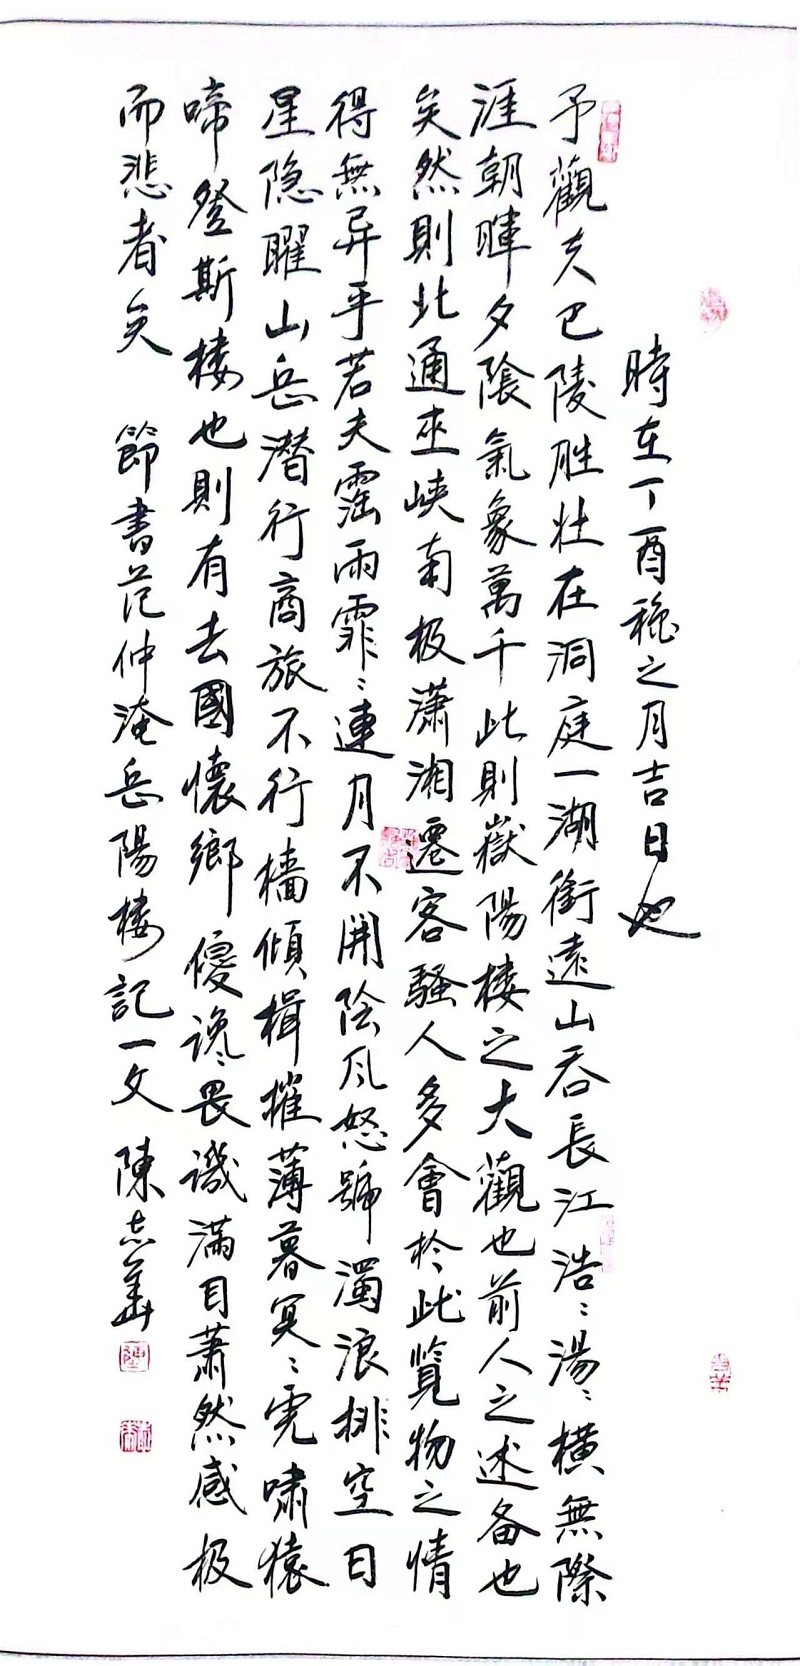 時在丁酉穐之月吉日也
予觀夫巴陵胜壮在洞庭一湖銜遠山吞長江浩〻湯〻橫無際
涯朝暉夕陰氣象萬千此則嶽陽楼之大觀也前人之述备也
矣然則北通巫峽南极瀟湘遷客騷人多會於此覽物之情
得無异乎若夫霪雨霏〻連月不開陰风怒號濁浪排空日
星隐曜山岳潜行商旅不行檣傾楫摧薄暮冥〻虎嘯猿
啼登斯楼也則有去國懷鄉優谗〻畏譏滿目萧然感极
而悲者矣 節書范仲淹岳陽楼記一文 陳志華